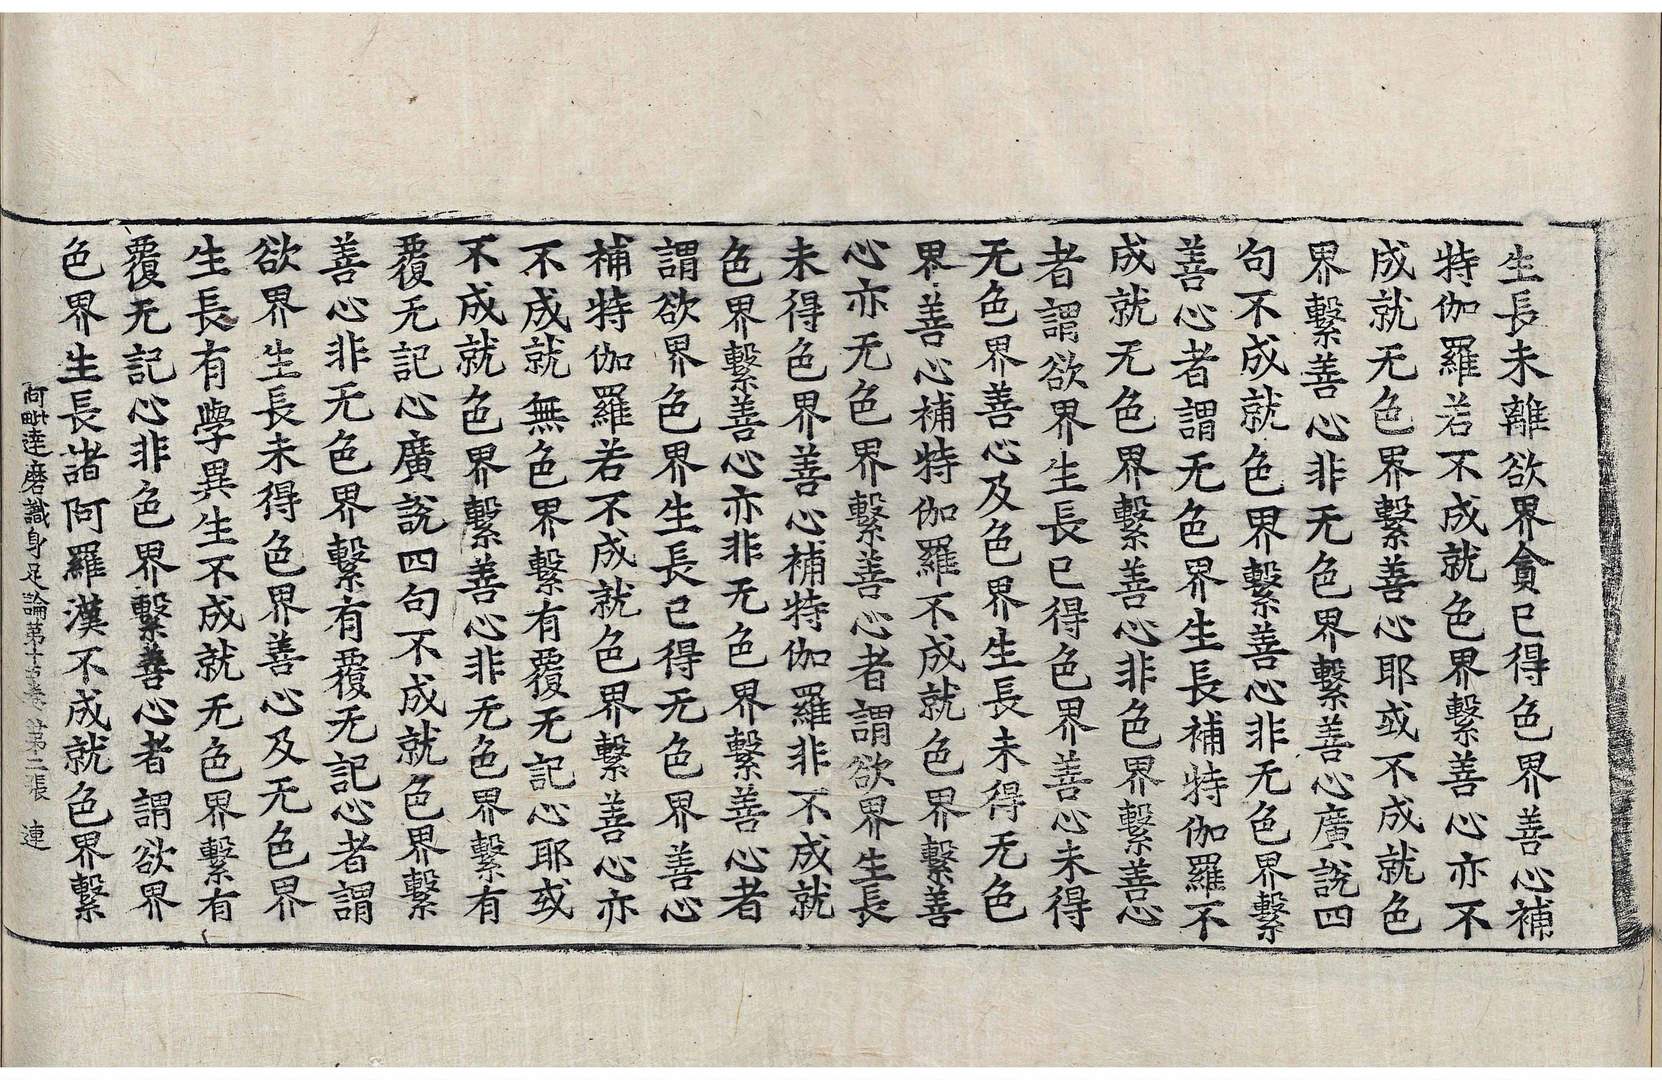 生長未離欲界貪已得色界善心補
特伽羅若不成就色界繫善心亦不
成就无色界繫善心耶或不成就色
界繫善心非无色界繫善心廣說四
句不成就色界繫善心非无色界繫
善心者謂无色界生長補特伽羅不
成就无色界繫善心非色界繫善心
者謂欲界生長已得色界善心未得
无色界善心及色界生長未得无色
界善心補特伽羅不成就色界繫善
心亦无色界繫善心者謂欲界生長
未得色界善心補特伽羅非不成就
色界繫善心亦非无色界繫善心者
謂欲界色界生長已得无色界善心
補特伽羅若不成就色界繫善心亦
不成就無色界繫有覆无記心耶或
不成就色界繫善心非无色界繫有
覆无記心廣說四句不成就色界繫
善心非无色界繫有覆无記心者謂
欲界生長未得色界善心及无色界
生長有學異生不成就无色界繫有
覆无記心非色界繫善心者謂欲界
色界生長諸阿羅漢不成就色界繫
阿毗達磨識身足論第十卷 第二張 連